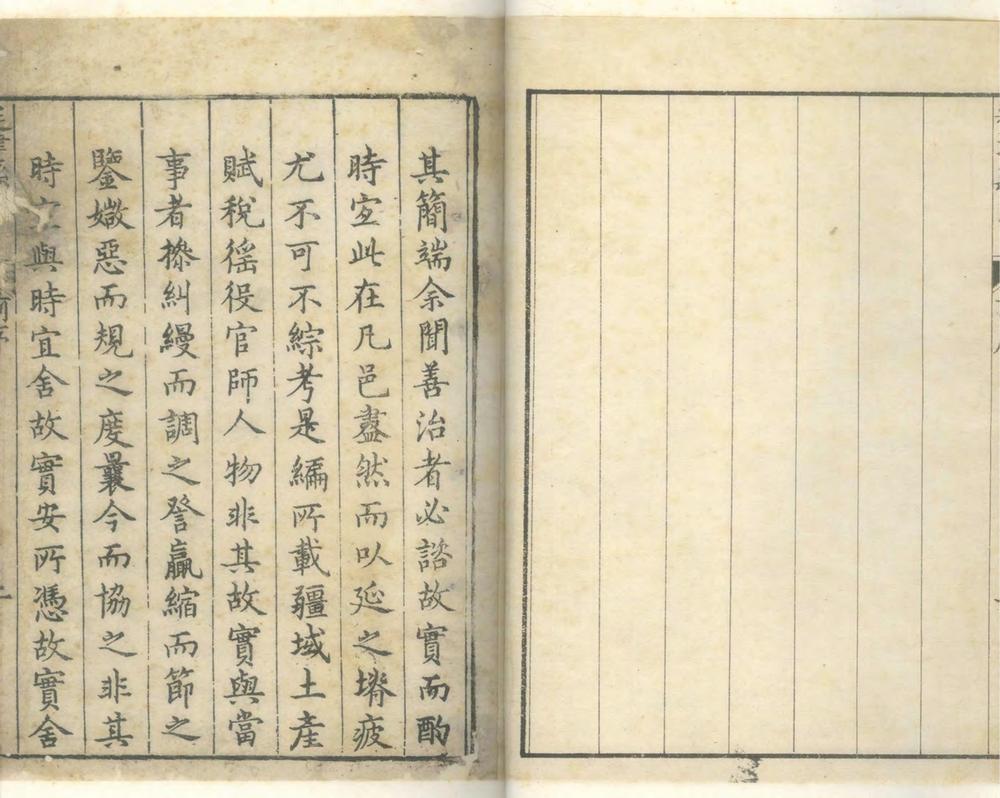 其簡端余聞善治者必諮故實而酌
時宜此在凡邑盡然而以延之塉疲
尤不可不綜考是編所載疆域土產
賦稅徭役官師人物非其故實與當
事者撩糾縵而調之詧贏縮而節之
鑒媺惡而規之度曩今而協之非其
時宜與時宜舍故實安所憑故實舍